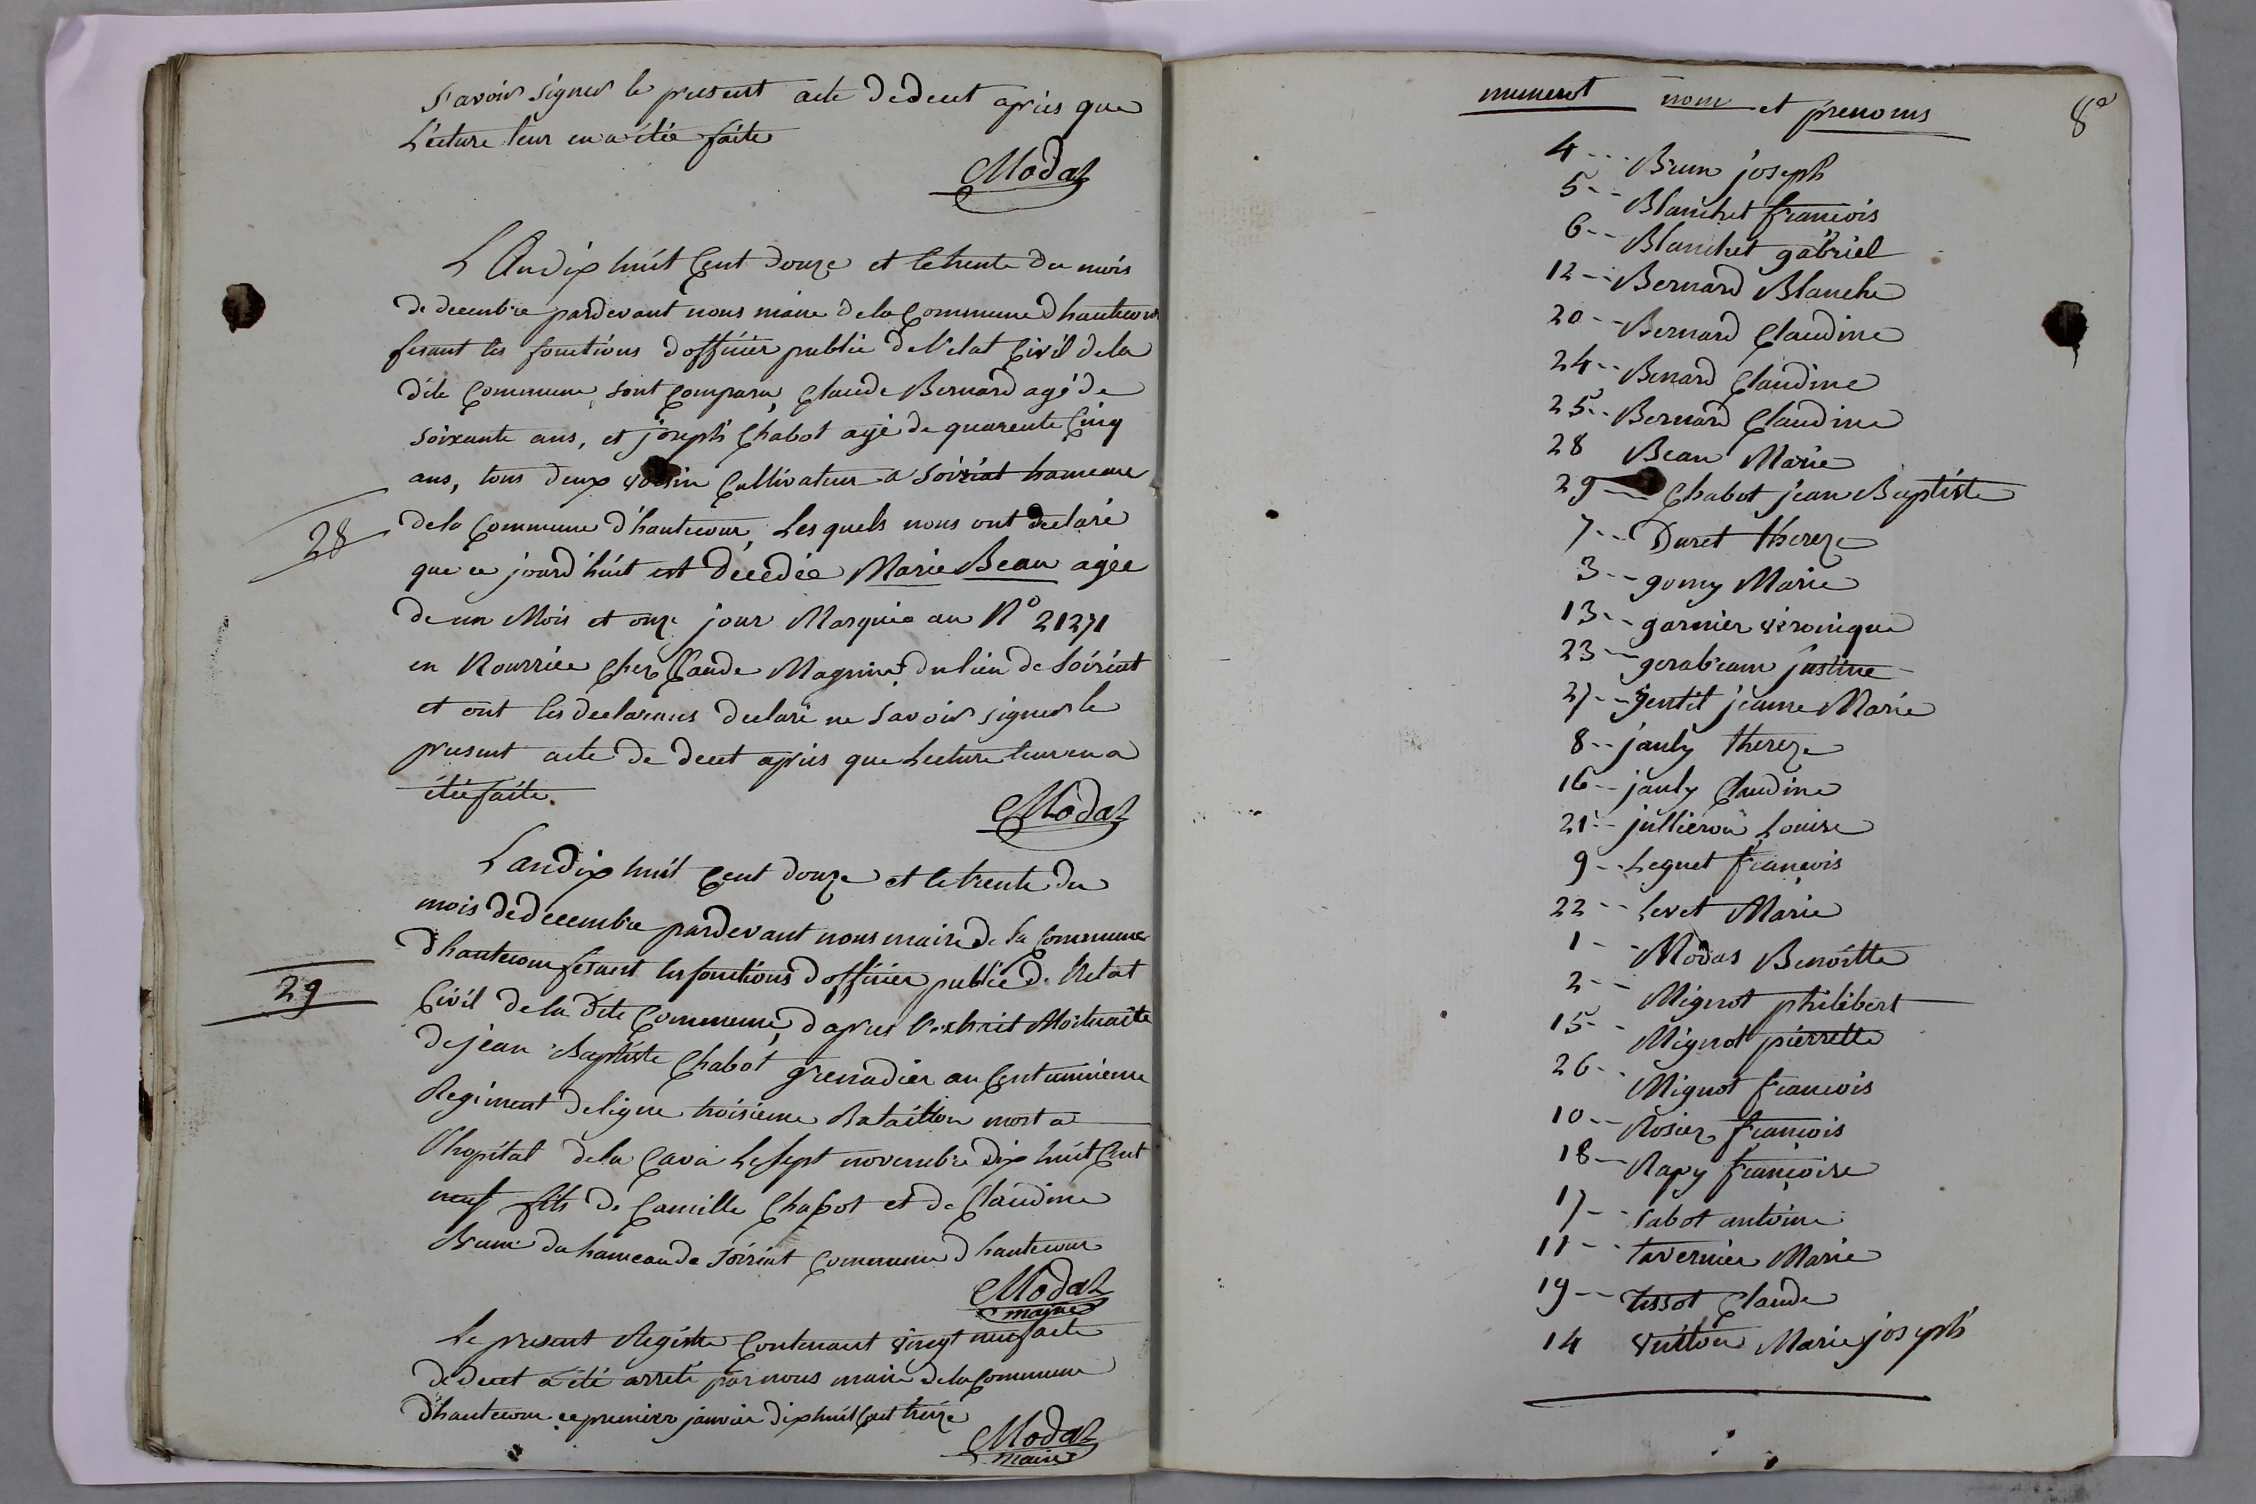 Savoir signer le present acte de decet apries que
Lecture leur en a étée faite
Modas
L'An dix huit Cent douze et le trente du mois
de decembre pardevant nous maire de la Commune d'hautecour
fesant les fonctions d'officier public de l'etat Civil de la
dite Commune, sont Comparu, Claude Bernard agé de
soixante ans, et joseph Chabot agé de quarente Cinq
ans, tous deux voisin Cultivateur a Soiriat hameau
de la Commune d'hautecour, Les quels nous ont declaré
que ce jourd'huit est décedée Marie Beau agée
28
de un Mois et onze jour Marquée au No 21271
en Nourrice Chez Claude Magnin du lieu de Soiriat
et ont les declarans declaré ne Savoir signer le
present acte de decet apries que Lecture leur en a
étée faite.
Modas
L'an dix huit Cent douze et le trente du
mois de decembre pardevant nous maire de la Commune
d'hautecour fesant les fonctions d'officier public de l'Etat
29
Civil de la dite Commune, d'aprest l'extrait Mortuaite
de jean Baptiste Chabot grenadier au Cent unnieme
Regiment de ligne troisieme Bataillon mort a
l'hopital de la Cava le sept novembre dix huit Cent
neuf fils de Camille Chabot et de Claudine
Brun du hameau de Soiriat Commune d'hautecour
Modas
maire
Le present Registre Contenant vingt neuf acte
de decet a été arreté par nous maire de la Commune
d'hautecour ce premier janvier dix huit Cent treize
Modas
maire
numerot nom et prenoms
8e
4 --- Brun joseph
5 -- Blanchet francois
6 -- Blanchet gabriel
12 -- Bernard Blanche
20 -- Bernard Claudine
24 -- Benard Claudine
25 -- Bernard Claudine
28 Beau Marie
29 -- Chabot jean Baptiste
7 -- Duret thereze
3 -- gomy Marie
13 -- garnier véronique
23 -- gerabeam justine
27 -- gentit jeanne Marie
8 -- janly thereze
16 -- janly Claudine
21 -- jullieron Louise
9 -- Leguet françois
22 -- Levet Marie
1 -- Modas Benoitte
2 -- Mignot philibert
15 -- Mignot pierrette
26 -- Mignot francois
10 -- Rosier francois
18 -- Rapy francoise
17 -- Sabot antoine
11 -- tavernier Marie
19 -- tissot Claude
14 vuiton Marie joseph